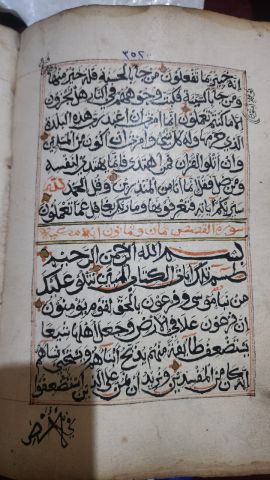 ٣٥٢
انه خبير بما تفعلون من جاء بالحسنة فله خير منها
ومن جاء بالسيئة فكبت وجوههم في النار هل تجزون
الا ما كنتم تعملون انما امرت ان اعبد رب هذه البلدة
الذي حرمها وله كل شيء وامرت ان اكون من المسلمين
وان اتلو القران فمن اهتدى فانما يهتدي لنفسه
ومن ضل فقل انما انا من المنذرين وقل الحمد لله
سيريكم اياته فتعرفونها وما ربك بغافل عما تعملون
سورة القصص ثمان وثمانون اية
بسم الله الرحمن الرحيم
طسم تلك ايات الكتاب المبين نتلو عليك
من نبا موسى وفرعون بالحق لقوم يؤمنون
ان فرعون علا في الارض وجعل اهلها شيعا
يستضعف طائفة منهم يذبح ابناءهم ويستحيي نساءهم
انه كان من المفسدين ونريد ان نمن على الذين استضعفوا
في الارض